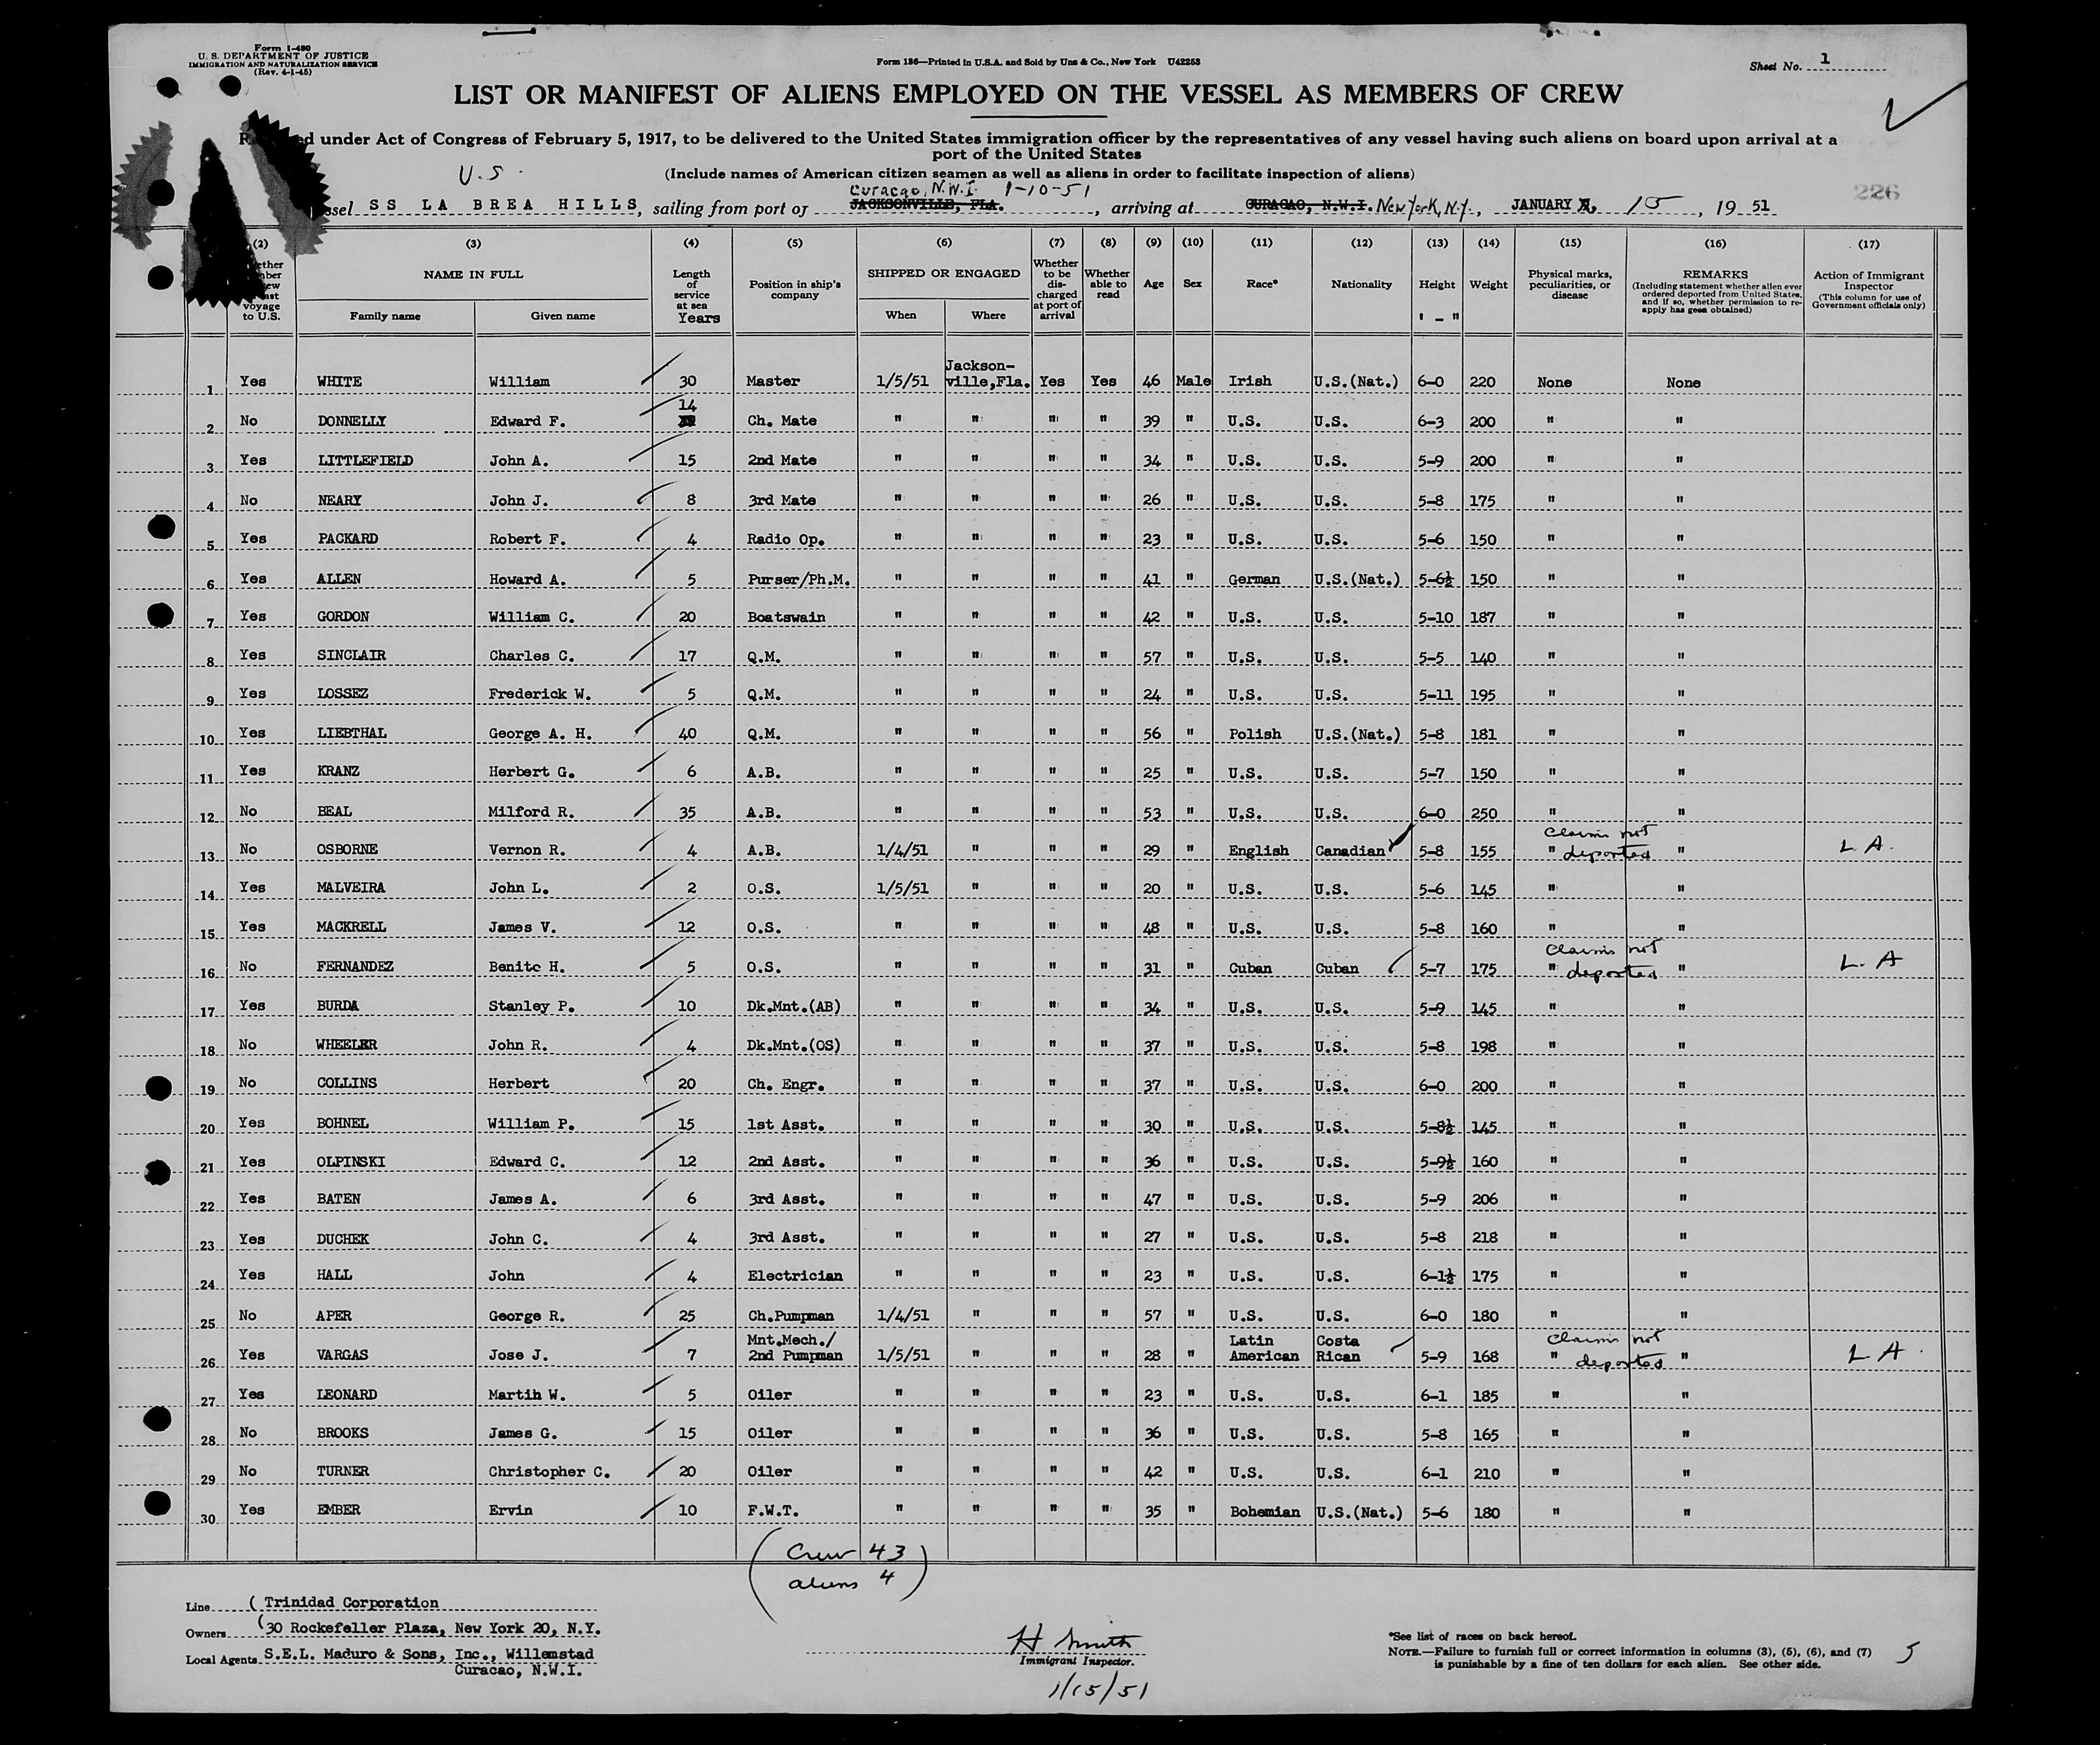 Form I-480
U. S. DEPARTMENT OF JUSTICE
IMMIGRATION AND NATURALIZATION SERVICE
(Rev. 4-1-45)
Form 136—Printed in U.S.A. and Sold by Unz & Co., New York U42253
Sheet No. 1
LIST OR MANIFEST OF ALIENS EMPLOYED ON THE VESSEL AS MEMBERS OF CREW
under Act of Congress of February 5, 1917, to be delivered to the United States immigration officer by the representatives of any vessel having such aliens on board upon arrival at a
port of the United States
U.S. (Include names of American citizen seamen as well as aliens in order to facilitate inspection of aliens)
Curacao, N.W.I. 1-10-51
226
SS LA BREA HILLS, sailing from port of JACKSONVILLE, FLA., arriving at CURACAO, N.W.I. New York, N.Y., JANUARY 15, 19 51
(2) (3) (4) (5) (6) (7) (8) (9) (10) (11) (12) (13) (14) (15) (16) (17)
voyage to U.S. NAME IN FULL Family name Given name Length of service at sea Years Position in ship's company SHIPPED OR ENGAGED When Where Whether to be discharged at port of arrival Whether able to read Age Sex Race* Nationality Height ' - " Weight Physical marks, peculiarities, or disease REMARKS (Including statement whether alien ever ordered deported from United States, and if so, whether permission to re-apply has been obtained) Action of Immigrant Inspector (This column for use of Government officials only)
1 Yes WHITE William 30 Master 1/5/51 Jackson-ville,Fla. Yes Yes 46 Male Irish U.S.(Nat.) 6-0 220 None None
2 No DONNELLY Edward F. 14 Ch. Mate " " " " 39 " U.S. U.S. 6-3 200 " "
3 Yes LITTLEFIELD John A. 15 2nd Mate " " " " 34 " U.S. U.S. 5-9 200 " "
4 No NEARY John J. 8 3rd Mate " " " " 26 " U.S. U.S. 5-8 175 " "
5 Yes PACKARD Robert F. 4 Radio Op. " " " " 23 " U.S. U.S. 5-6 150 " "
6 Yes ALLEN Howard A. 5 Purser/Ph.M. " " " " 41 " German U.S.(Nat.) 5-6½ 150 " "
7 Yes GORDON William C. 20 Boatswain " " " " 42 " U.S. U.S. 5-10 187 " "
8 Yes SINCLAIR Charles C. 17 Q.M. " " " " 57 " U.S. U.S. 5-5 140 " "
9 Yes LOSSEZ Frederick W. 5 Q.M. " " " " 24 " U.S. U.S. 5-11 195 " "
10 Yes LIEBTHAL George A. H. 40 Q.M. " " " " 56 " Polish U.S.(Nat.) 5-8 181 " "
11 Yes KRANZ Herbert G. 6 A.B. " " " " 25 " U.S. U.S. 5-7 150 " "
12 No BEAL Milford R. 35 A.B. " " " " 53 " U.S. U.S. 6-0 250 " "
13 No OSBORNE Vernon R. 4 A.B. 1/4/51 " " " 29 " English Canadian 5-8 155 " claims not deported " L.A.
14 Yes MALVEIRA John L. 2 O.S. 1/5/51 " " " 20 " U.S. U.S. 5-6 145 " "
15 Yes MACKRELL James V. 12 O.S. " " " " 48 " U.S. U.S. 5-8 160 " "
16 No FERNANDEZ Benito H. 5 O.S. " " " " 31 " Cuban Cuban 5-7 175 " claims not deported " L.A
17 Yes BURDA Stanley P. 10 Dk.Mnt.(AB) " " " " 34 " U.S. U.S. 5-9 145 " "
18 No WHEELER John R. 4 Dk.Mnt.(OS) " " " " 37 " U.S. U.S. 5-8 198 " "
19 No COLLINS Herbert 20 Ch. Engr. " " " " 37 " U.S. U.S. 6-0 200 " "
20 Yes BOHNEL William P. 15 1st Asst. " " " " 30 " U.S. U.S. 5-8½ 145 " "
21 Yes OLPINSKI Edward C. 12 2nd Asst. " " " " 36 " U.S. U.S. 5-9½ 160 " "
22 Yes BATEN James A. 6 3rd Asst. " " " " 47 " U.S. U.S. 5-9 206 " "
23 Yes DUCHEK John C. 4 3rd Asst. " " " " 27 " U.S. U.S. 5-8 218 " "
24 Yes HALL John 4 Electrician " " " " 23 " U.S. U.S. 6-1½ 175 " "
25 No APER George R. 25 Ch.Pumpman 1/4/51 " " " 57 " U.S. U.S. 6-0 180 " "
26 Yes VARGAS Jose J. 7 Mnt.Mech./2nd Pumpman 1/5/51 " " " 28 " Latin American Costa Rican 5-9 168 " claims not deported " L A.
27 Yes LEONARD Martin W. 5 Oiler " " " " 23 " U.S. U.S. 6-1 185 " "
28 No BROOKS James G. 15 Oiler " " " " 36 " U.S. U.S. 5-8 165 " "
29 No TURNER Christopher C. 20 Oiler " " " " 42 " U.S. U.S. 6-1 210 " "
30 Yes EMBER Ervin 10 F.W.T. " " " " 35 " Bohemian U.S.(Nat.) 5-6 180 " "
(Crew 43
aliens 4)
Line ( Trinidad Corporation
Owners (30 Rockefeller Plaza, New York 20, N.Y.
Local Agents S.E.L. Maduro & Sons, Inc., Willemstad
Curacao, N.W.I.
H Smith
Immigrant Inspector.
1/15/51
*See list of races on back hereof.
NOTE.—Failure to furnish full or correct information in columns (3), (5), (6), and (7)
is punishable by a fine of ten dollars for each alien. See other side.
5